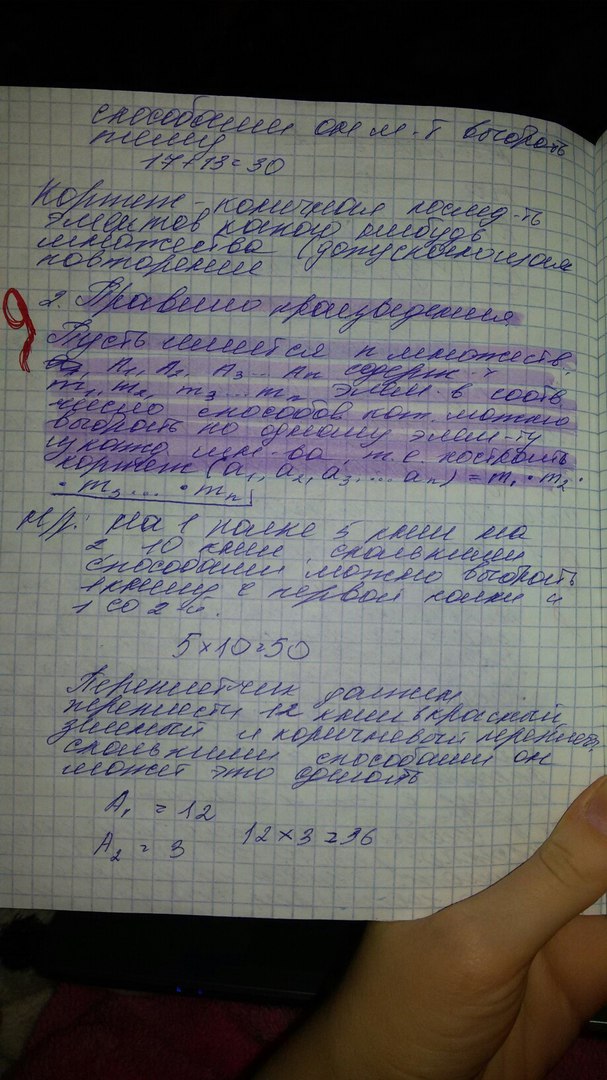 способами он м-т выбрать
тему
17+13=30
Кортеж - конечная послед-ть
элементов какого нибудь
множества (допускающая
повторение
9
2. Правило произведения
Пусть имеется n множеств
A₁, A₂, A₃... Aₙ содерж-х
m₁, m₂, m₃... mₙ элем. в соотв
число способов кот. можно
выбрать по одному элем-ту
из кажд мн-ва т.е. построить
кортеж (a₁, a₂, a₃, ... aₙ) = m₁ · m₂ ·
· m₃.... · mₙ
Н/р: На 1 полке 5 книг на
2 10 книг сколькими
способами можно выбрать
1 книгу с первой полки и
1 со 2 й.
5×10=50
Переплетчик должен
переплести 12 книг в красный
зеленый и коричневый переплет,
сколькими способами он
может это сделать
A₁ = 12
A₂ = 3 12×3=36